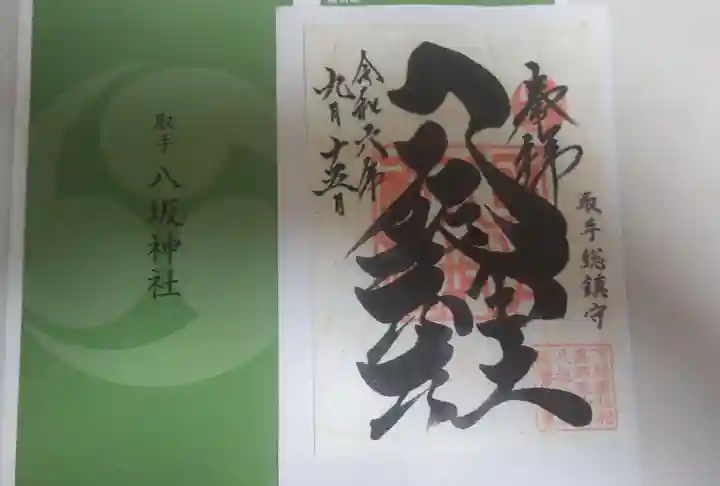 取手
八坂神社
奉拝
取手総鎮守
八坂神社
令和六年
九月十五日